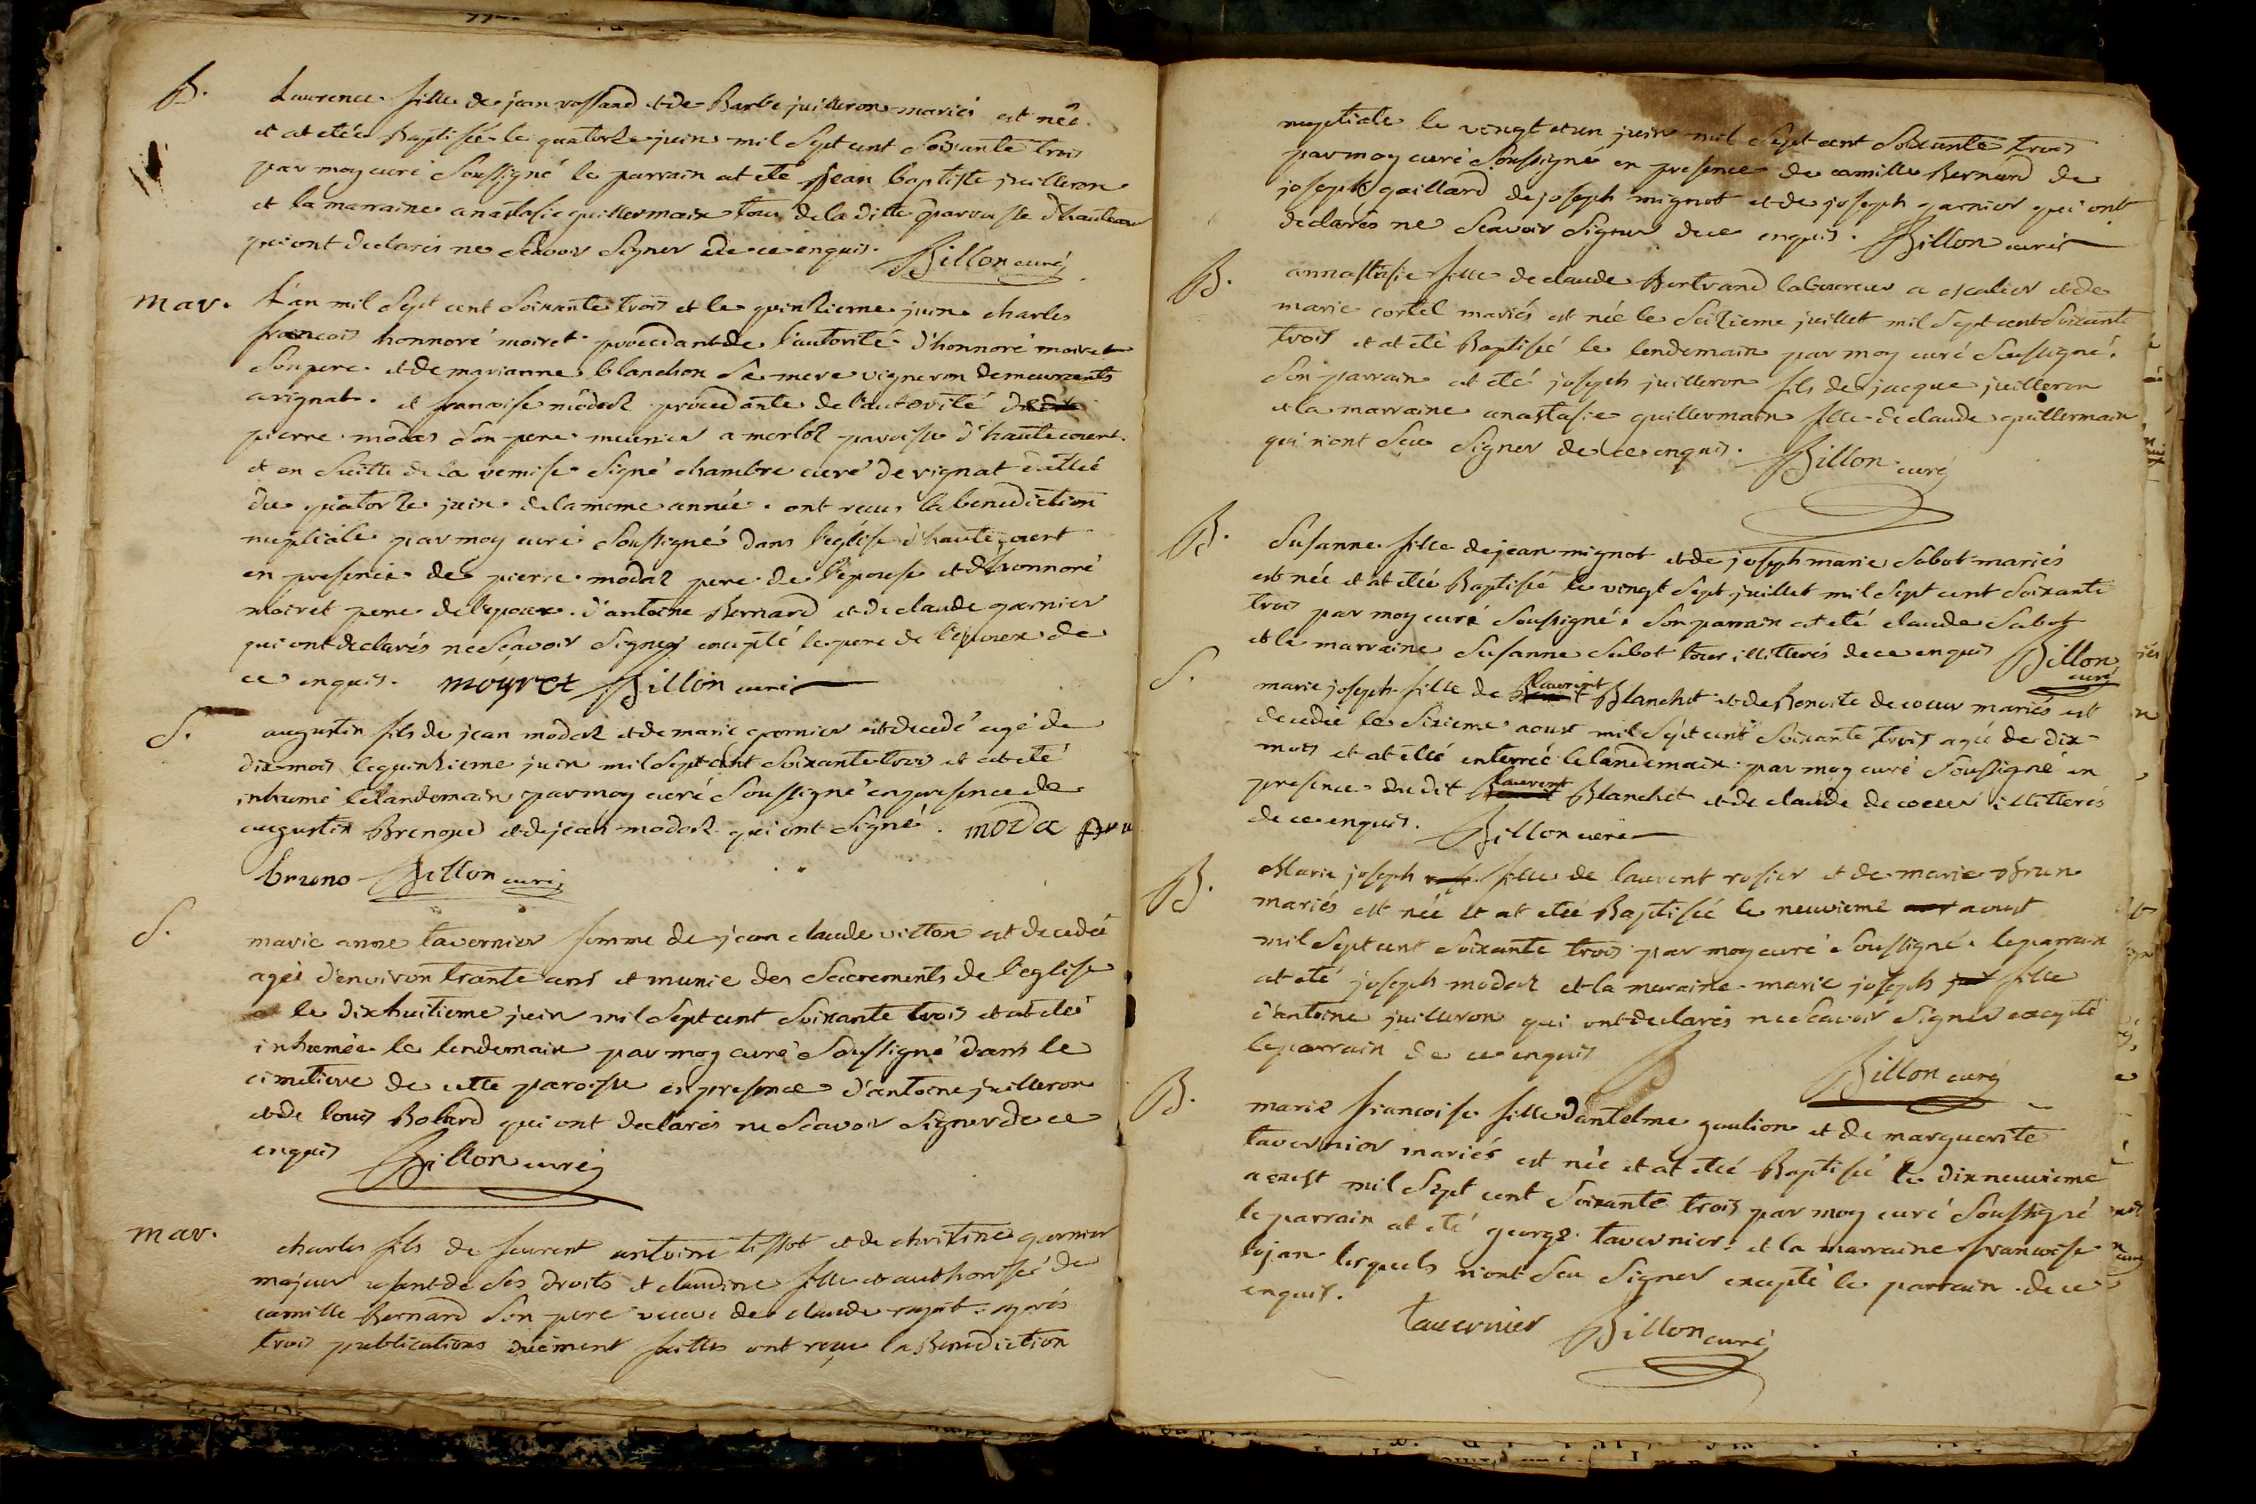 B.
Laurence fille de jean vassard et de Barbe juilleron mariés est née
et at etée Baptisée le quatorze juin mil Sept cent Soixante trois
par moy curé Soussigné le parrain at eté jean baptiste juilleron
et la marraine anastasie guillermain tous de la ditte parroisse d'hautecour
qui ont declarés ne Scavoir Signer de ce enquis. Billon curé
mar.
L'an mil Sept cent Soixante trois et le quinzieme juin charles
francois honnoré moiret procedant de l'autorité d'honnoré moiret
Son pere et de marianne blanchon Sa mere vigneron demeurants
a rignat. et francoise modaz procedante de l'autorité
pierre modas Son pere meunier a merloz paroisse d'hautecourt.
et en Suitte de la remise Signé chambre curé de rignat dattée
du quatorze juin de la meme année. ont recus la benediction
nuptiale par moy curé Soussigné dans l'église d'hautecourt
en presence de pierre modaz pere de l'epouse et d'honnoré
moiret pere de l'epoux. d'antoine Bernard et de claude garnier
qui ont declarés ne Sçavoir Signer excepté le pere de l'epoux de
ce enquis. moyret Billon curé
S.
augustin fils de jean modaz et de marie garnier est decedé agé de
dix mois le quinzieme juin mil Sept cent Soixante trois et at eté
inhumé le landemain par moy curé Soussigné en presence de
augustin et de jean modaz qui ont Signé. moda
bruno Billon curé
S.
marie anne tavernier femme de jean claude vitton est decedée
agée d'environ trante ans et munie des Sacrements de l'eglise
le dixhuitieme juin mil Sept cent Soixante trois et at eté
inhumée le lendemain par moy curé Soussigné dans le
cimetiere de cette paroisse en presence d'antoine juilleron
et de louis Bolard qui ont declarés ne Scavoir Signer de ce
enquis Billon curé
mar.
charles fils de feurent antoine tissot et de christine garnier
majeur usant de Ses droits et claudine fille et authorisée de
camille Bernard Son pere veuve de claude ragat. après
trois publications duement faittes ont reçue la Benediction
nuptiale le vingt et un juin mil Sept cent Soixante trois
par moy curé Soussigné en presence de camille Bernard de
joseph gaillard de joseph mignot et de joseph garnier qui ont
declarés ne Scavoir Signer de ce enquis. Billon curé
B.
annastasie fille de claude Bertrand laboureur a escalier et de
marie cortel mariés est née le Seizieme juillet mil Sept cent Soixante
trois et at eté Baptisée le lendemain par moy curé Soussigné.
Son parrain at eté joseph juilleron fils de jacque juilleron
et la marraine anastasie guillermain fille de claude guillermain
qui n'ont Sçu Signer de ce enquis. Billon curé
B.
Susanne fille de jean mignot et de joseph marie Sabot mariés
est née et at etée Baptisée le vingt Sept juillet mil Sept cent Soixante
trois par moy curé Soussigné. Son parrain at eté claude Sabot
et la marraine Susanne Sabot tous illitterés de ce enquis Billon
curé
S.
marie joseph fille de laurent Blanchet et de Benoite decoeur mariés est
decedée le Sixieme aoust mil Sept cent Soixante trois agée de dix
mois et at etée enterrée le landemain par moy curé Soussigné en
presence du dit laurent Blanchet et de claude decoeur illitterés
de ce enquis. Billon curé
B.
Marie joseph fille de laurent rosier et de marie Brun
mariés est née et at etée Baptisée le neuvieme aoust
mil Sept cent Soixante trois par moy curé Soussigné. le parrain
at eté joseph modaz et la maraine marie joseph fille
d'antoine juilleron qui ont declarés ne Scavoir Signer excepté
le parrain de ce enquis
Billon curé
B.
marie francoise fille d'antelme goulion et de marguerite
tavernier mariés est née et at etée Baptisée le dixneuvieme
aoust mil Sept cent Soixante trois par moy curé Soussigné
le parrain at eté george tavernier et la marraine francoise
lojan lesquels n'ont Seu Signer excepté le parrain de ce
enquis.
tavernier Billon curé